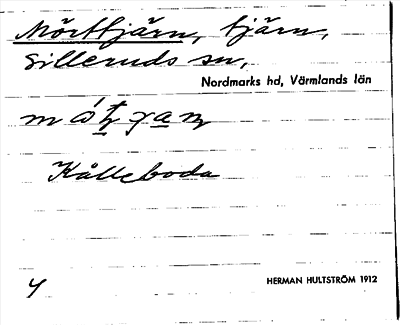 Mörttjärn, tjärn,
Silleruds sn,
Nordmarks hd, Värmlands län
Kålleboda
HERMAN HULTSTRÖM 1912